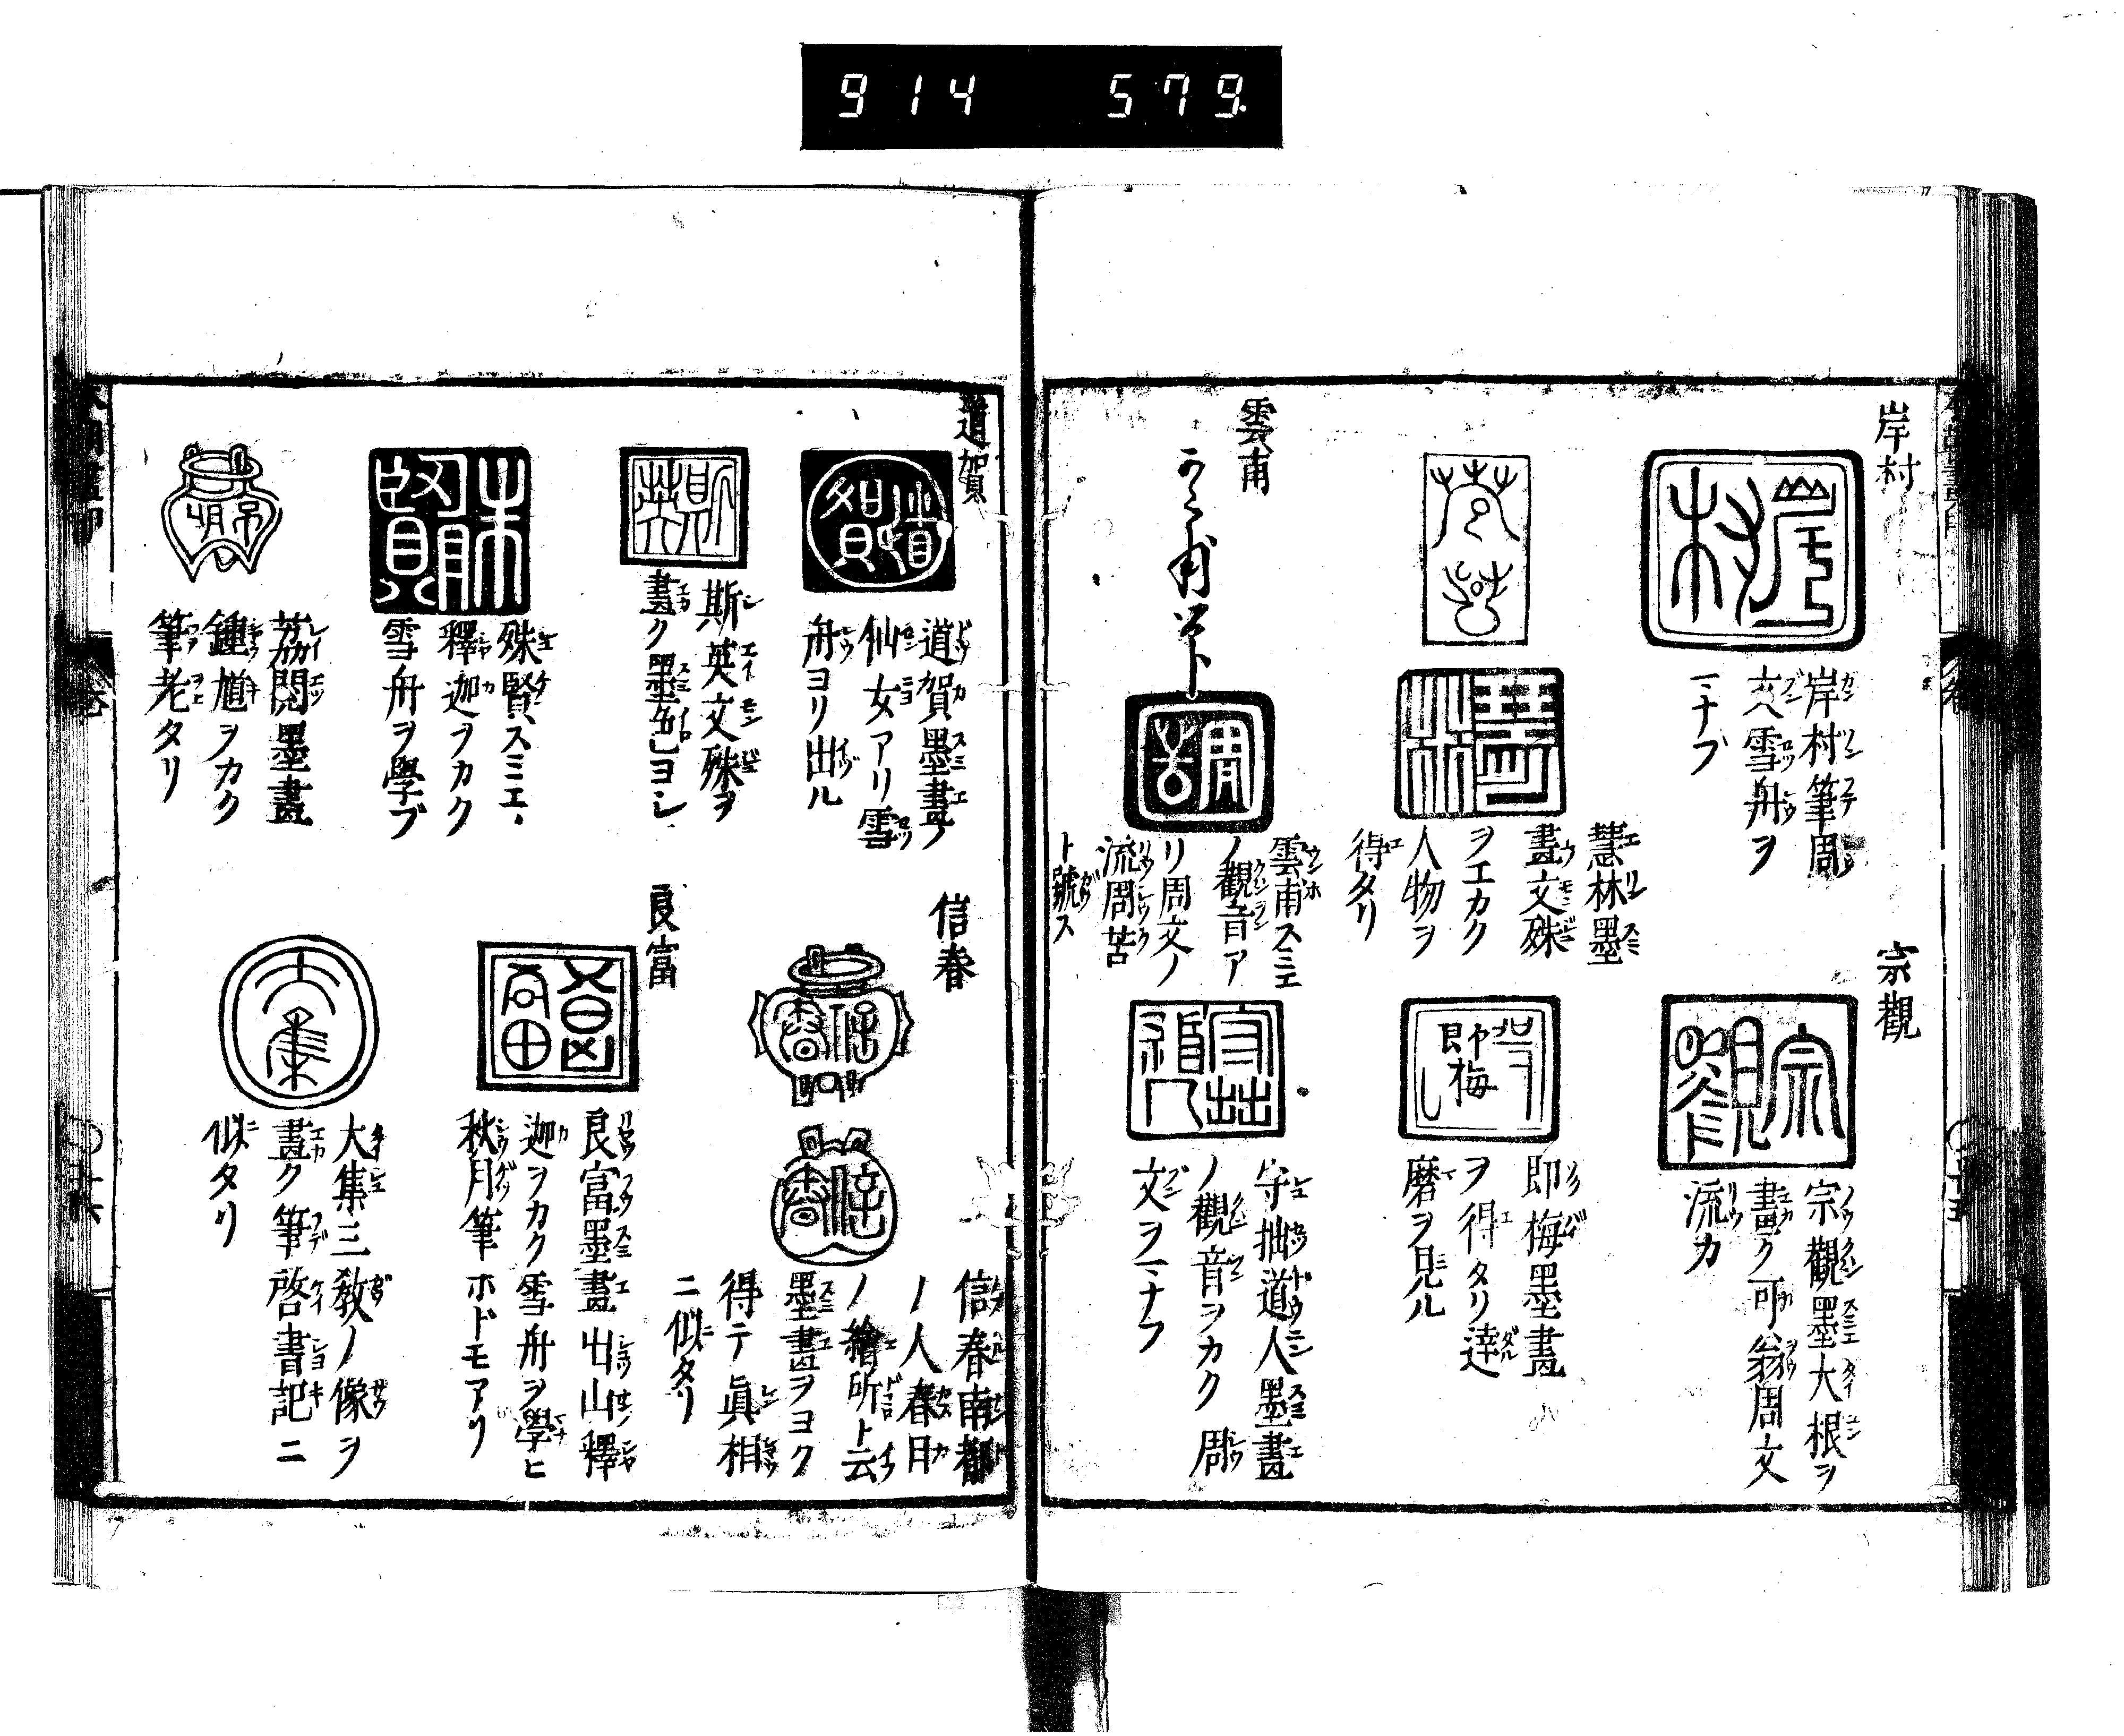 914 579
岸村
岸村筆周
文雪舟ヲ
マナブ
慧林墨
畫文殊
ヲエカク
人物ヲ
得タリ
雲甫
雲甫スミエ
ノ觀音ア
リ周文ノ
流周苦
ト號ス
宗觀
宗觀墨大根ヲ
畫ク可翁周文
流カ
即梅
即梅墨畫
ヲ得タリ達
磨ヲ見ル
守拙道人墨畫
ノ觀音ヲカク周
文ヲマナフ
道賀
道賀墨畫ノ
仙女アリ雪
舟ヨリ出ル
斯英文殊ヲ
畫ク墨色ヨシ
殊賢スミエ
釋迦ヲカク
雪舟ヲ學ブ
茘閲墨畫
鍾馗ヲカク
筆老タリ
信春
信春南都
ノ人春日
ノ繪所ト云
墨畫ヲヨク
得テ眞相
ニ似タリ
良富
良富墨畫出山釋
迦ヲカク雪舟ヲ學ヒ
秋月筆ホドモアリ
大集三教ノ像ヲ
畫ク筆啓書記ニ
似タリ